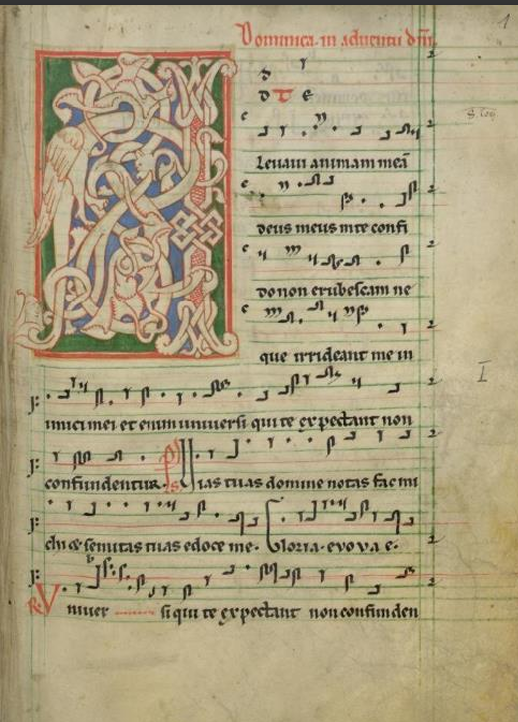 Dominica in adventu dni
D T E
Levavi animam meā
deus meus in te confi
do non erubescam ne
que irrideant me in
imici mei et enim universi qui te expectant non
confundentur. Ps Uias tuas domine notas fac mi
chi & semitas tuas edoce me. Gloria. evovae.
R Univer si qui te expectant non confunden
I